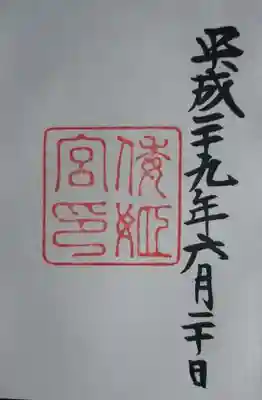 平成二十九年六月二十日
倭姫
宮印